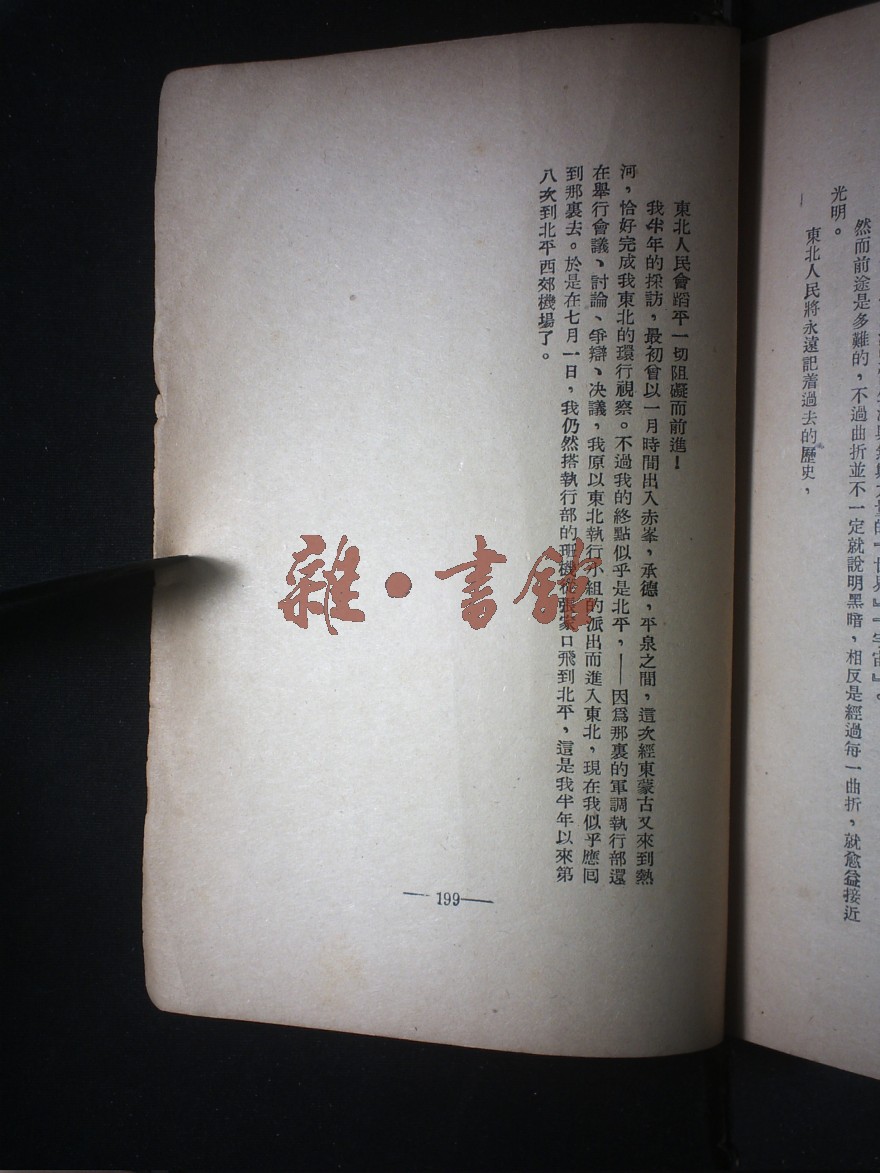 然而前途是多難的，不過曲折並不一定就說明黑暗，相反是經過每一曲折，就愈益接近
光明。
東北人民將永遠記着過去的歷史，
東北人民會蹈平一切阻礙而前進！
我半年的採訪，最初曾以一月時間出入赤峯，承德，平泉之間，這次經東蒙古又來到熱
河，恰好完成我東北的環行視察。不過我的終點似乎是北平，——因爲那裏的軍調執行部還
在舉行會議、討論、爭辯、决議，我原以東北執行小組的派出而進入東北，現在我似乎應囘
到那裏去。於是在七月一日，我仍然搭執行部的班機從張家口飛到北平，這是我半年以來第
八次到北平西郊機場了。
—199—
雜·書館